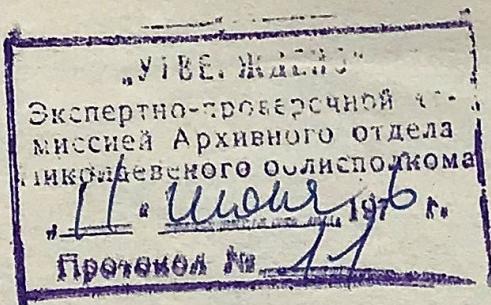 „УТВЕРЖДЕНО"
Экспертно-проверочной ко-
миссией Архивного отдела
Николаевского облисполкома
„11" июня 1976 г.
Протокол № 11